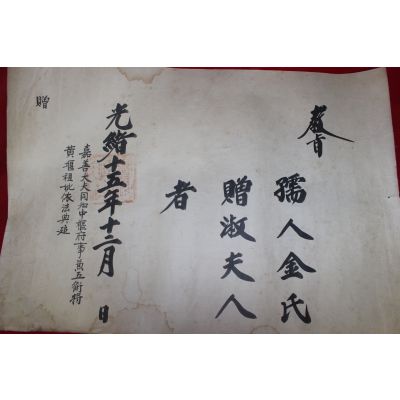 敎旨
孺人金氏
贈淑夫人
者
光緖十五年十二月 日
嘉善大夫同知中樞府事兼五衛將
黃 祖妣依法典追
贈